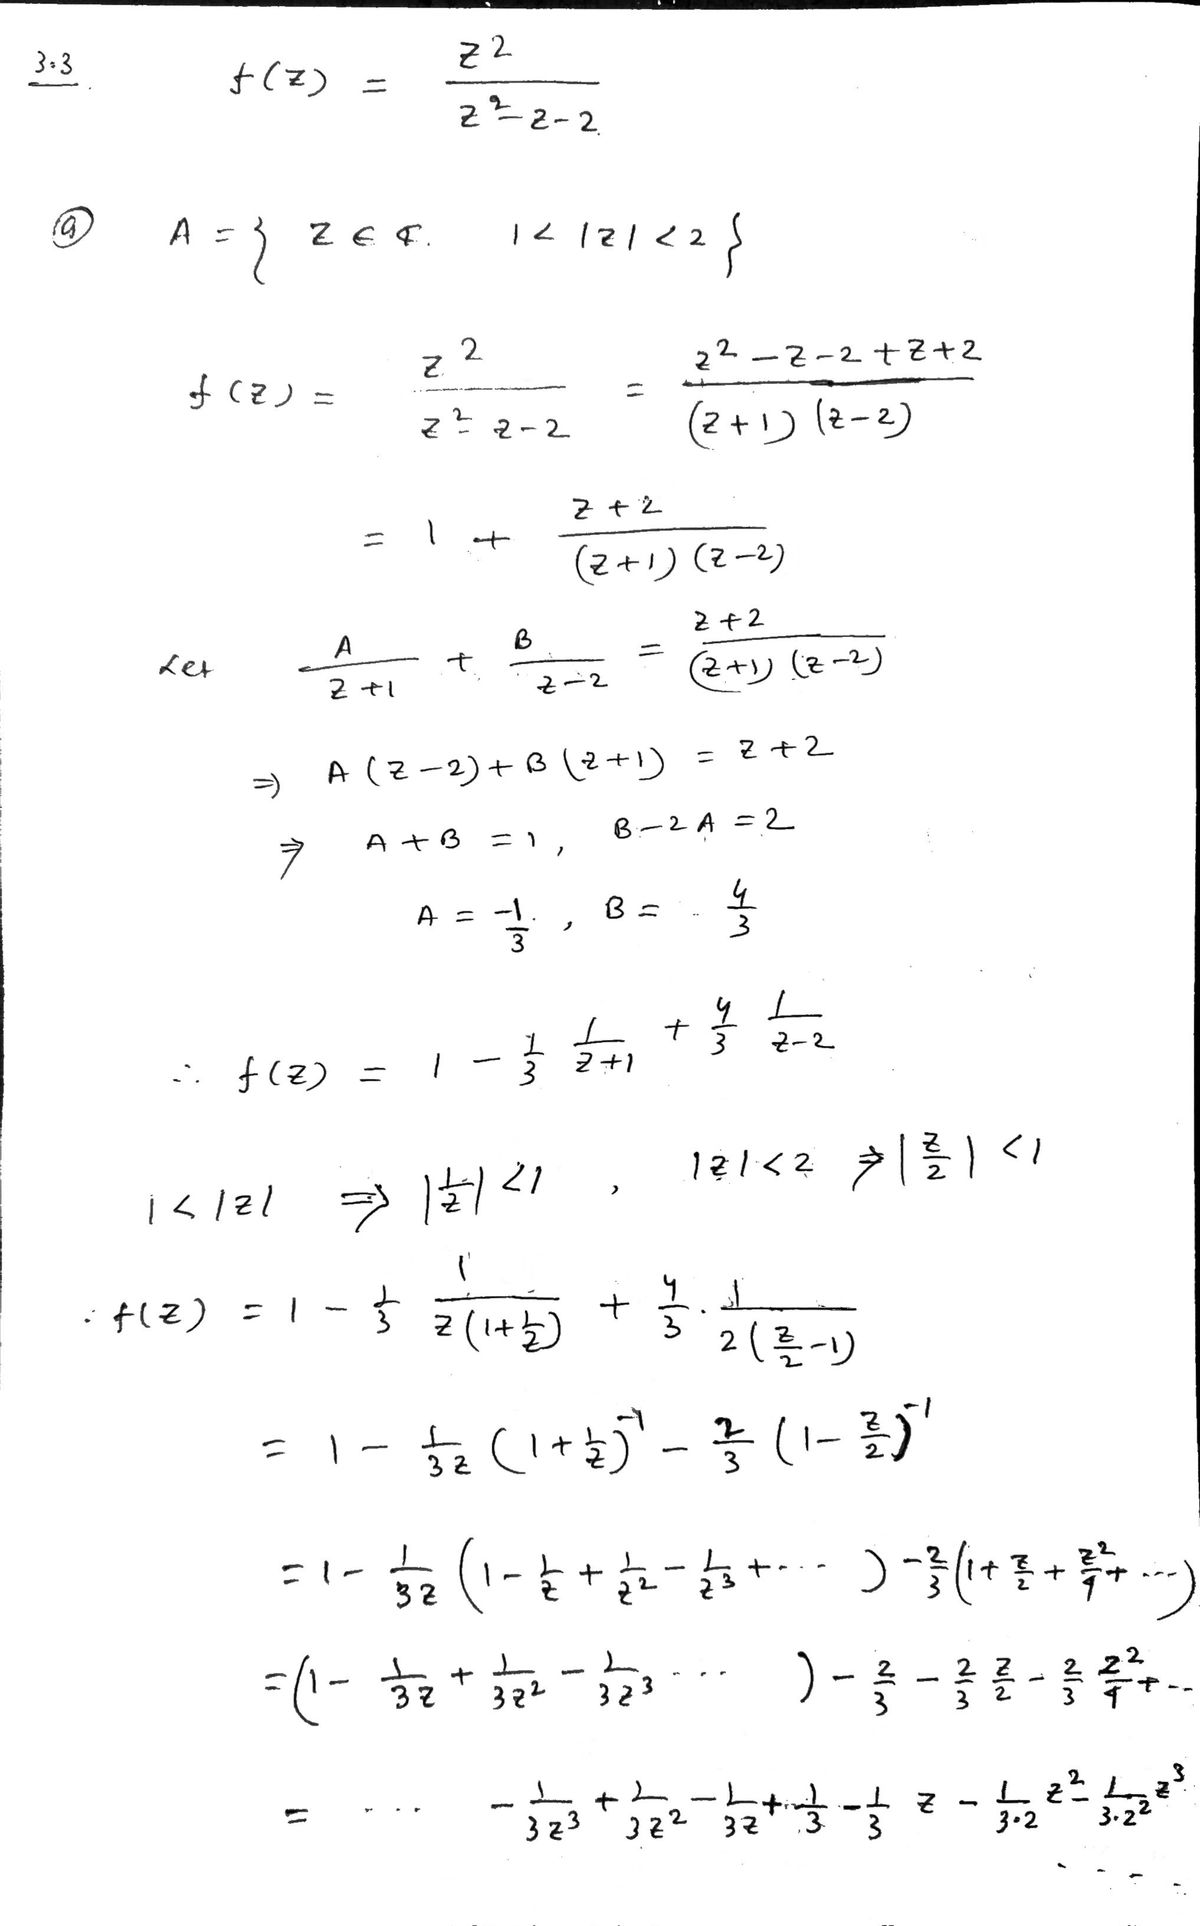 3.3. f(z) = z²/(z² - z - 2)
(a) A = { z ∈ ℂ. 1 < |z| < 2 }
f(z) = z²/(z² - z - 2) = (z² - z - 2 + z + 2)/((z+1)(z-2))
= 1 + (z+2)/((z+1)(z-2))
Let A/(z+1) + B/(z-2) = (z+2)/((z+1)(z-2))
⇒ A(z-2) + B(z+1) = z+2
⇒ A + B = 1, B - 2A = 2
A = -1/3, B = 4/3
∴ f(z) = 1 - 1/3 1/(z+1) + 4/3 1/(z-2)
1 < |z| ⇒ |1/z| < 1, |z| < 2 ⇒ |z/2| < 1
∴ f(z) = 1 - 1/3 1/(z(1+1/z)) + 4/3 · 1/(2(z/2 - 1))
= 1 - 1/(3z) (1+1/z)⁻¹ - 2/3 (1 - z/2)⁻¹
= 1 - 1/(3z) (1 - 1/z + 1/z² - 1/z³ + ...) - 2/3 (1 + z/2 + z²/4 + ...)
= (1 - 1/(3z) + 1/(3z²) - 1/(3z³) ...) - 2/3 - 2/3 z/2 - 2/3 z²/4 + ...
= ... - 1/(3z³) + 1/(3z²) - 1/(3z) + 1/3 - 1/3 z - 1/(3·2) z² - 1/(3·2²) z³ ....